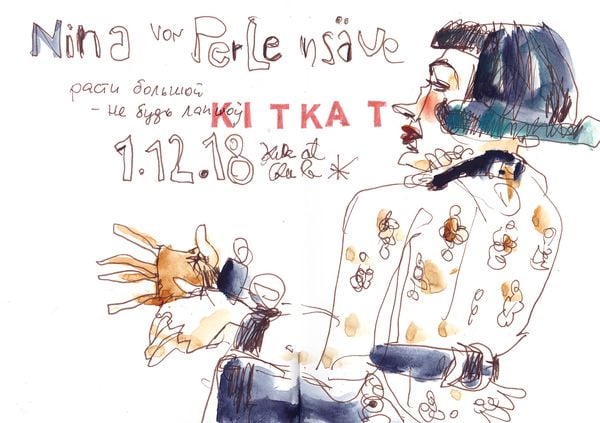 Nina von Perlensäue
расти большой
- не будь лапшой
KITKAT
1.12.18